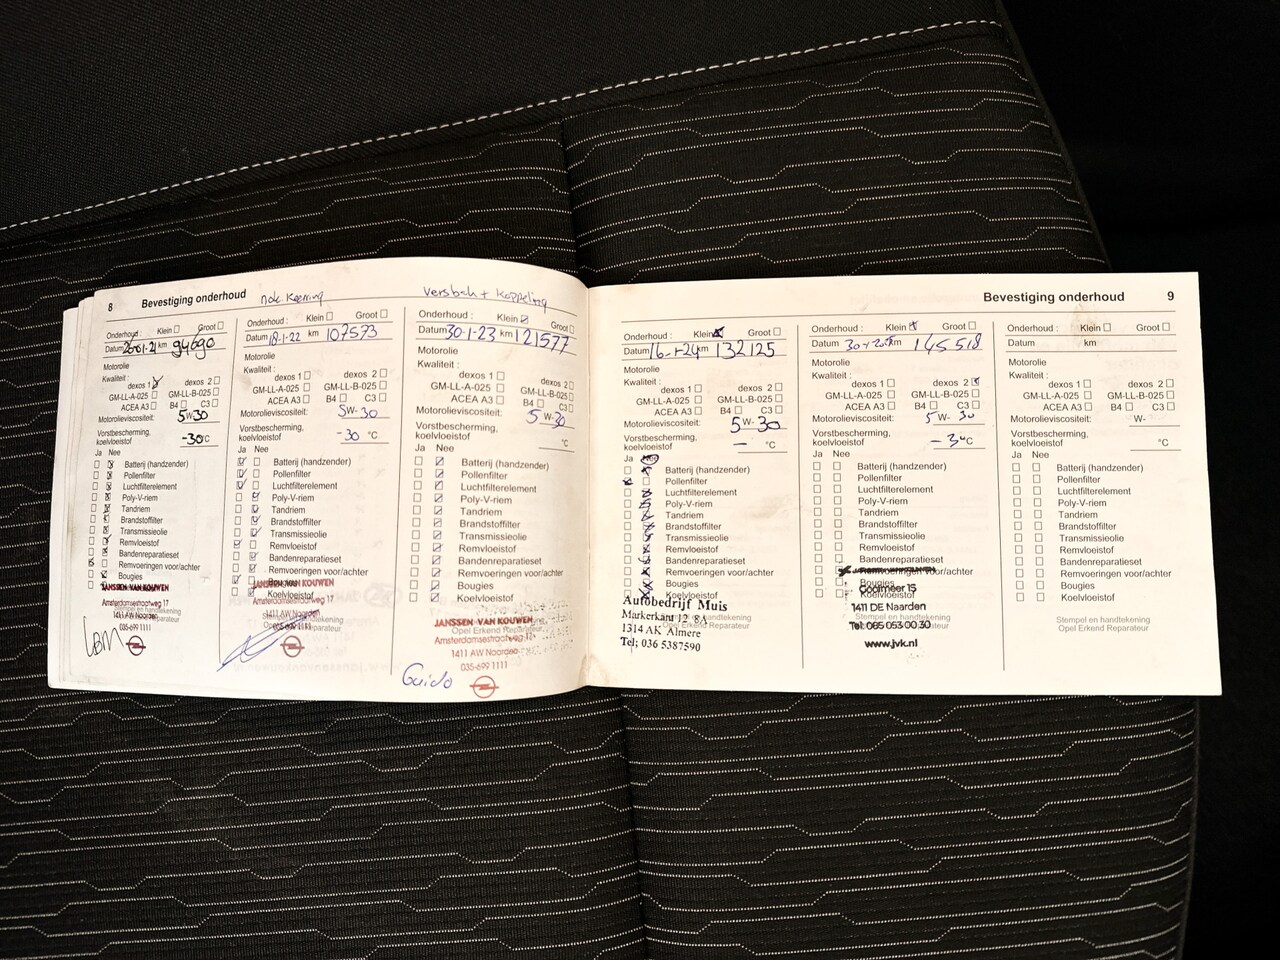 8 Bevestiging onderhoud
Onderhoud : Klein Groot
Datum km 94690
Motorolie
Kwaliteit :
dexos 1 dexos 2
GM-LL-A-025 GM-LL-B-025
ACEA A3 B4 C3
Motorolieviscositeit: 5W-30
Vorstbescherming,
koelvloeistof -30°C
Ja Nee
Batterij (handzender)
Pollenfilter
Luchtfilterelement
Poly-V-riem
Tandriem
Brandstoffilter
Transmissieolie
Remvloeistof
Bandenreparatieset
Remvoeringen voor/achter
Bougies
JANSSEN VAN KOUWEN
Amsterdamsestraatweg 17
Stempel en handtekening
1411 AW Naarden
035-699 1111
Onderhoud : Klein Groot
Datum 18-1-22 km 107573
Motorolie
Kwaliteit :
dexos 1 dexos 2
GM-LL-A-025 GM-LL-B-025
ACEA A3 B4 C3
Motorolieviscositeit: 5W-30
Vorstbescherming,
koelvloeistof -30 °C
Ja Nee
Batterij (handzender)
Pollenfilter
Luchtfilterelement
Poly-V-riem
Tandriem
Brandstoffilter
Transmissieolie
Remvloeistof
Bandenreparatieset
Remvoeringen voor/achter
Koelvloeistof
JANSSEN VAN KOUWEN
Amsterdamsestraatweg 17
Stempel en handtekening
1411 AW Naarden
035-699 1111
Versbak + Koppeling
Onderhoud : Klein Groot
Datum 30-1-23 km 121577
Motorolie
Kwaliteit :
dexos 1 dexos 2
GM-LL-A-025 GM-LL-B-025
ACEA A3 B4 C3
Motorolieviscositeit: 5W-30
Vorstbescherming,
koelvloeistof °C
Ja Nee
Batterij (handzender)
Pollenfilter
Luchtfilterelement
Poly-V-riem
Tandriem
Brandstoffilter
Transmissieolie
Remvloeistof
Bandenreparatieset
Remvoeringen voor/achter
Bougies
Koelvloeistof
JANSSEN VAN KOUWEN
Opel Erkend Reparateur
Amsterdamsestraatweg 17
1411 AW Naarden
035-699 1111
Guido
Bevestiging onderhoud 9
Onderhoud : Klein Groot
Datum 16-1-24 km 132125
Motorolie
Kwaliteit :
dexos 1 dexos 2
GM-LL-A-025 GM-LL-B-025
ACEA A3 B4 C3
Motorolieviscositeit: 5W-30
Vorstbescherming,
koelvloeistof — °C
Ja Nee
Batterij (handzender)
Pollenfilter
Luchtfilterelement
Poly-V-riem
Tandriem
Brandstoffilter
Transmissieolie
Remvloeistof
Bandenreparatieset
Remvoeringen voor/achter
Bougies
Koelvloeistof
Autobedrijf Muis
Markerkant 12 8A
1314 AK Almere
Tel: 036 5387590
Onderhoud : Klein Groot
Datum km 145518
Motorolie
Kwaliteit :
dexos 1 dexos 2
GM-LL-A-025 GM-LL-B-025
ACEA A3 B4 C3
Motorolieviscositeit: 5W-30
Vorstbescherming,
koelvloeistof °C
Ja Nee
Batterij (handzender)
Pollenfilter
Luchtfilterelement
Poly-V-riem
Tandriem
Brandstoffilter
Transmissieolie
Remvloeistof
Bandenreparatieset
Remvoeringen voor/achter
Bougies
Koelvloeistof
Gooimeer 15
1411 DE Naarden
Stempel en handtekening
Tel: 085 053 00 30
www.jvk.nl
Onderhoud : Klein Groot
Datum km
Motorolie
Kwaliteit :
dexos 1 dexos 2
GM-LL-A-025 GM-LL-B-025
ACEA A3 B4 C3
Motorolieviscositeit: W-
Vorstbescherming,
koelvloeistof °C
Ja Nee
Batterij (handzender)
Pollenfilter
Luchtfilterelement
Poly-V-riem
Tandriem
Brandstoffilter
Transmissieolie
Remvloeistof
Bandenreparatieset
Remvoeringen voor/achter
Bougies
Koelvloeistof
Stempel en handtekening
Opel Erkend Reparateur